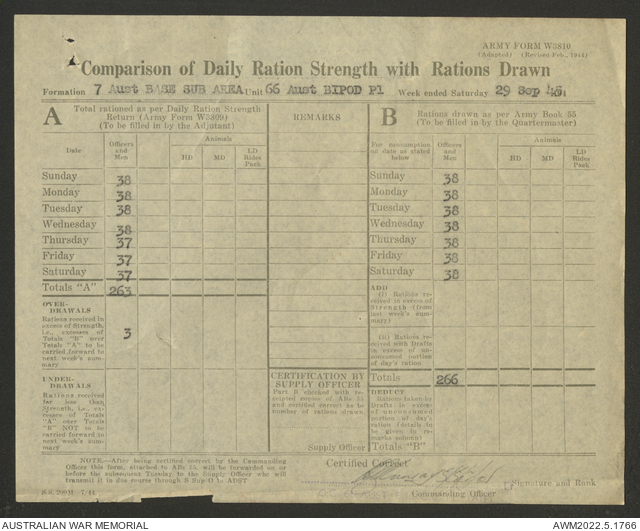 ARMY FORM W3810
(Adapted) (Revised Feb., 1944)
Comparison of Daily Ration Strength with Rations Drawn
Formation 7 Aust BASE SUB AREA Unit 66 Aust BIPOD Pl Week ended Saturday 29 Sep 45
A Total rationed as per Daily Ration Strength
Return (Army Form W3809)
(To be filled in by the Adjutant)
REMARKS
B Rations drawn as per Army Book 55
(To be filled in by the Quartermaster)
Date
Officers and Men
Animals
HD MD LD Rides Pack
For consumption on date as stated below
Officers and Men
Animals
HD MD LD Rides Pack
Sunday 38 Sunday 38
Monday 38 Monday 38
Tuesday 38 Tuesday 38
Wednesday 38 Wednesday 38
Thursday 37 Thursday 38
Friday 37 Friday 38
Saturday 37 Saturday 38
Totals "A" 263
OVER-
DRAWALS
Rations received in
excess of Strength,
i.e., excesses of
Totals "B" over
Totals "A" to be
carried forward to
next week's sum-
mary
3
UNDER-
DRAWALS
Rations received
far less than
Strength, i.e., ex-
cesses of Totals
"A" over Totals
"B" NOT to be
carried forward to
next week's sum-
mary
CERTIFICATION BY
SUPPLY OFFICER
Part B checked with re-
ceipted copies of ABs 55
and certified correct as to
number of rations drawn.
Supply Officer
ADD
(i) Rations re-
ceived in excess of
Strength (from
last week's sum-
mary)
(ii) Rations re-
ceived with Drafts
in excess of un-
consumed portion
of day's ration
Totals 266
DEDUCT
Rations taken by
Drafts in
of unconsumed
portion of day's
ration (details
to be given in re-
marks column)
Totals "B"
NOTE.—After being certified correct by the Commanding
Officer this form, attached to ABs 55, will be forwarded on or
before the subsequent Tuesday to the Supply Officer who will
transmit it in due course through S Sup O to ADST
Certified Correct
Signature and Rank
Commanding Officer
AUSTRALIAN WAR MEMORIAL
AWM2022.5.1766